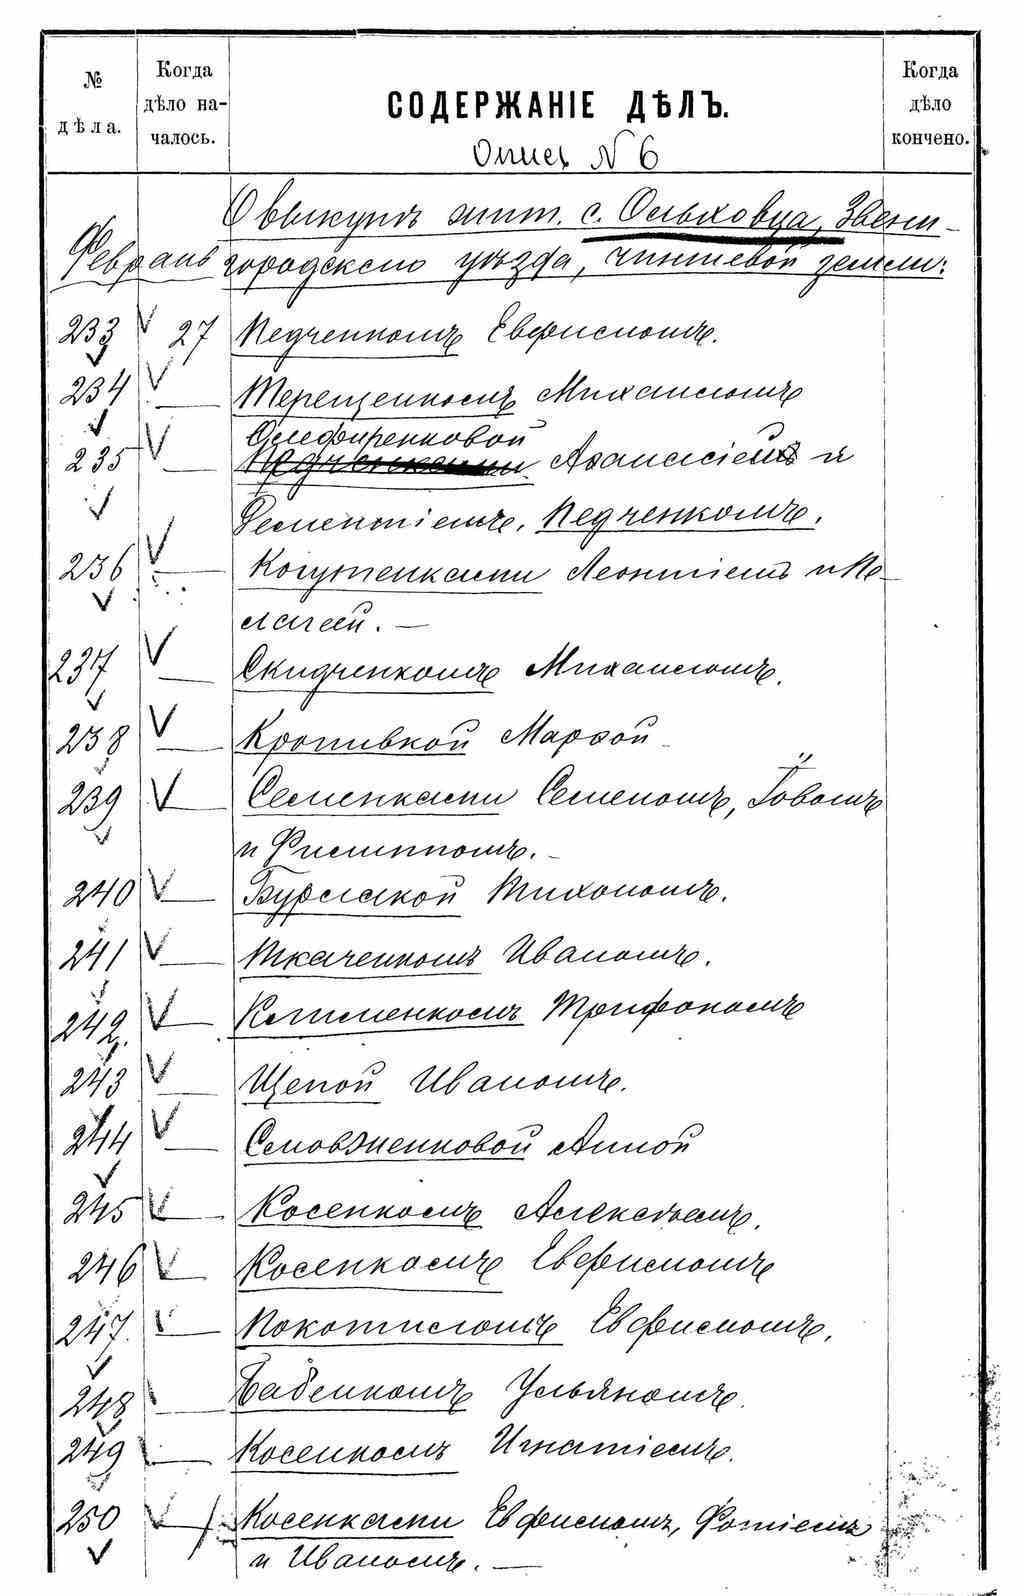 № дѣла.
Когда дѣло началось.
СОДЕРЖАНІЕ ДѢЛЪ.
Когда дѣло кончено.
Опись № 6
О выкупѣ жит. с. Ольховца, Звени-
Февраль городскаго уѣзда, чиншевой земли:
233 27 Педченкомъ Евфимомъ.
234 — Терещенкомъ Михаиломъ
Олефиренковой
235 — Афанасіемъ и
Дементіемъ, Педченкомъ.
236 — Когутенками Леонтіемъ и Пе-
лагеей. —
237 — Скидченкомъ Михаиломъ.
238 — Кропивкой Марфой
239 — Семенками Семеномъ, Іовомъ
и Филиппомъ. —
240 — Бурлакой Тихономъ.
241 — Ткаченкомъ Иваномъ.
242. — Трифономъ
243 — Щепой Иваномъ.
244 — Анной
245 — Косенкомъ Алексѣемъ.
246 — Косенкомъ Евфимомъ
247. — Покотиломъ Евфимомъ.
248 — Бабенкомъ Ульяномъ.
249 — Косенкомъ Игнатіемъ.
250 — Косенками Евфимомъ, Фотіемъ
и Иваномъ. —